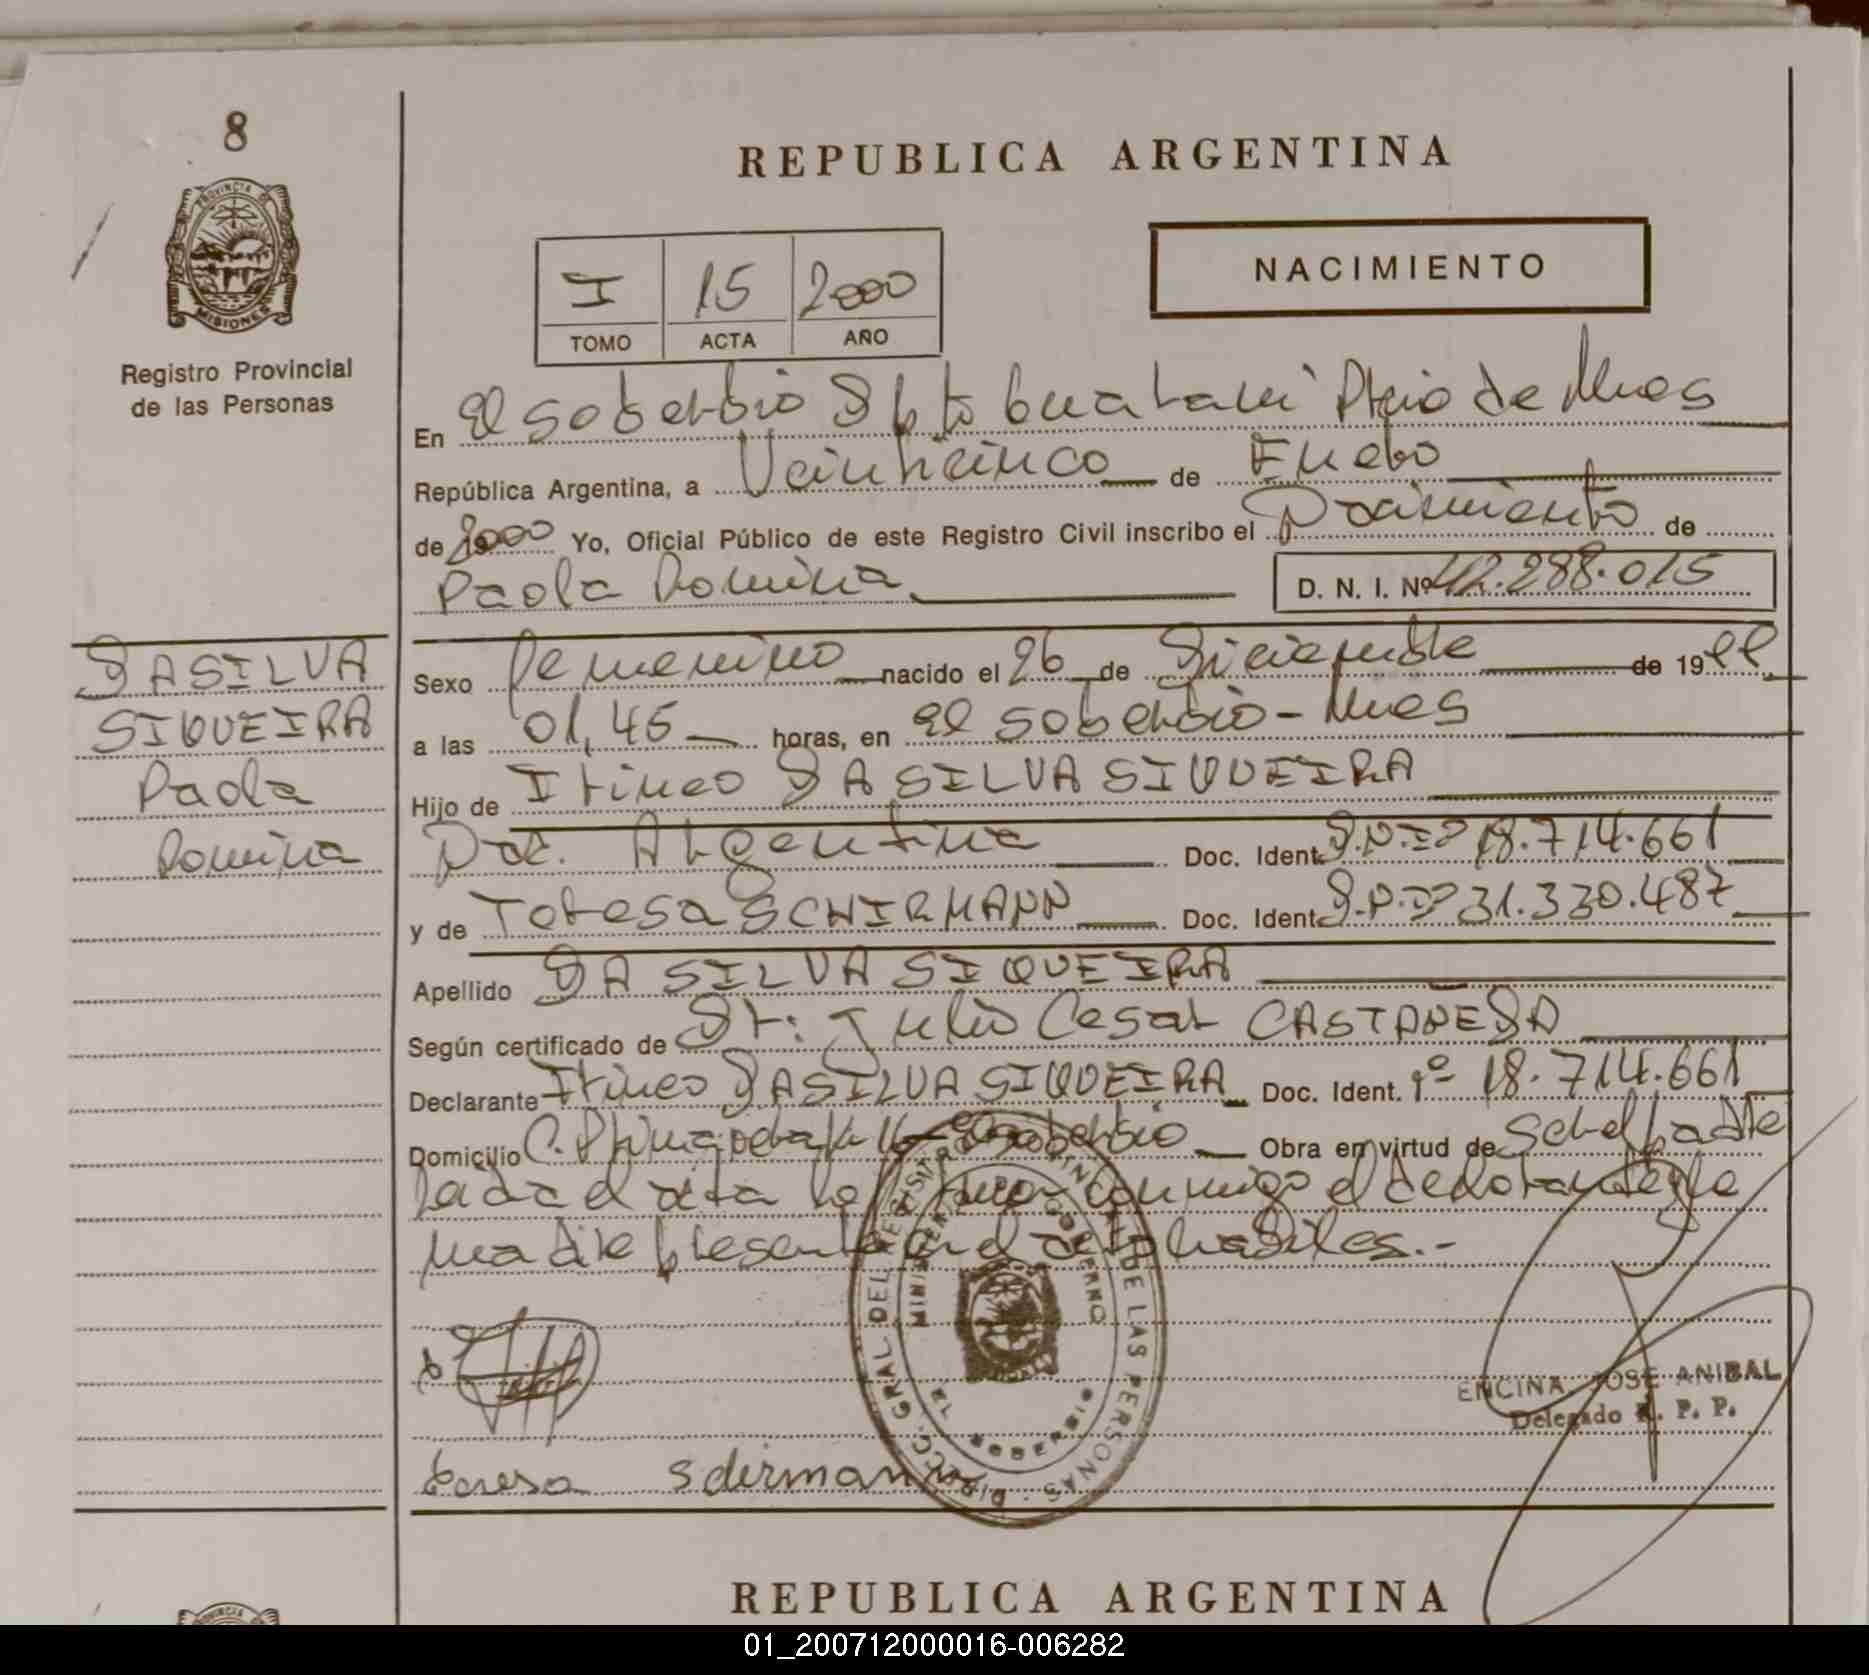 8
REPUBLICA ARGENTINA
PROVINCIA DE
MISIONES
Registro Provincial
de las Personas
NACIMIENTO
I 15 2000
TOMO ACTA AÑO
En El Soberbio Dpto Guarani Pcia de Mnes
República Argentina, a Veinticinco de Enero
de 2000 Yo, Oficial Público de este Registro Civil inscribo el Nacimiento de
Paola Romina D. N. I. Nº 42.288.015
DA SILVA
SIQUEIRA
Paola
Romina
Sexo Femenino nacido el 26 de Diciembre de 1999
a las 01,45 horas, en El Soberbio - Mnes
Hijo de Irineo DA SILVA SIQUEIRA
Nac. Argentina Doc. Ident. D.N.I. Nº 18.714.661
y de Teresa SCHIRMANN Doc. Ident. D.N.I. Nº 31.330.487
Apellido DA SILVA SIQUEIRA
Según certificado de Dr: Julio Cesar CASTAÑEDA
Declarante Irineo DA SILVA SIQUEIRA Doc. Ident. Nº 18.714.661
Domicilio El Soberbio Obra en virtud de ser el padre
Leida el acta la firman conmigo el declarante y la
madre presente en el acto
DIRECC. GRAL DEL REGISTRO PROVINCIAL DE LAS PERSONAS
MINISTERIO DE GOBIERNO
EL SOBERBIO
ENCINA JOSE ANIBAL
Delegado R. P. P.
teresa Schirmann
REPUBLICA ARGENTINA
01_200712000016-006282